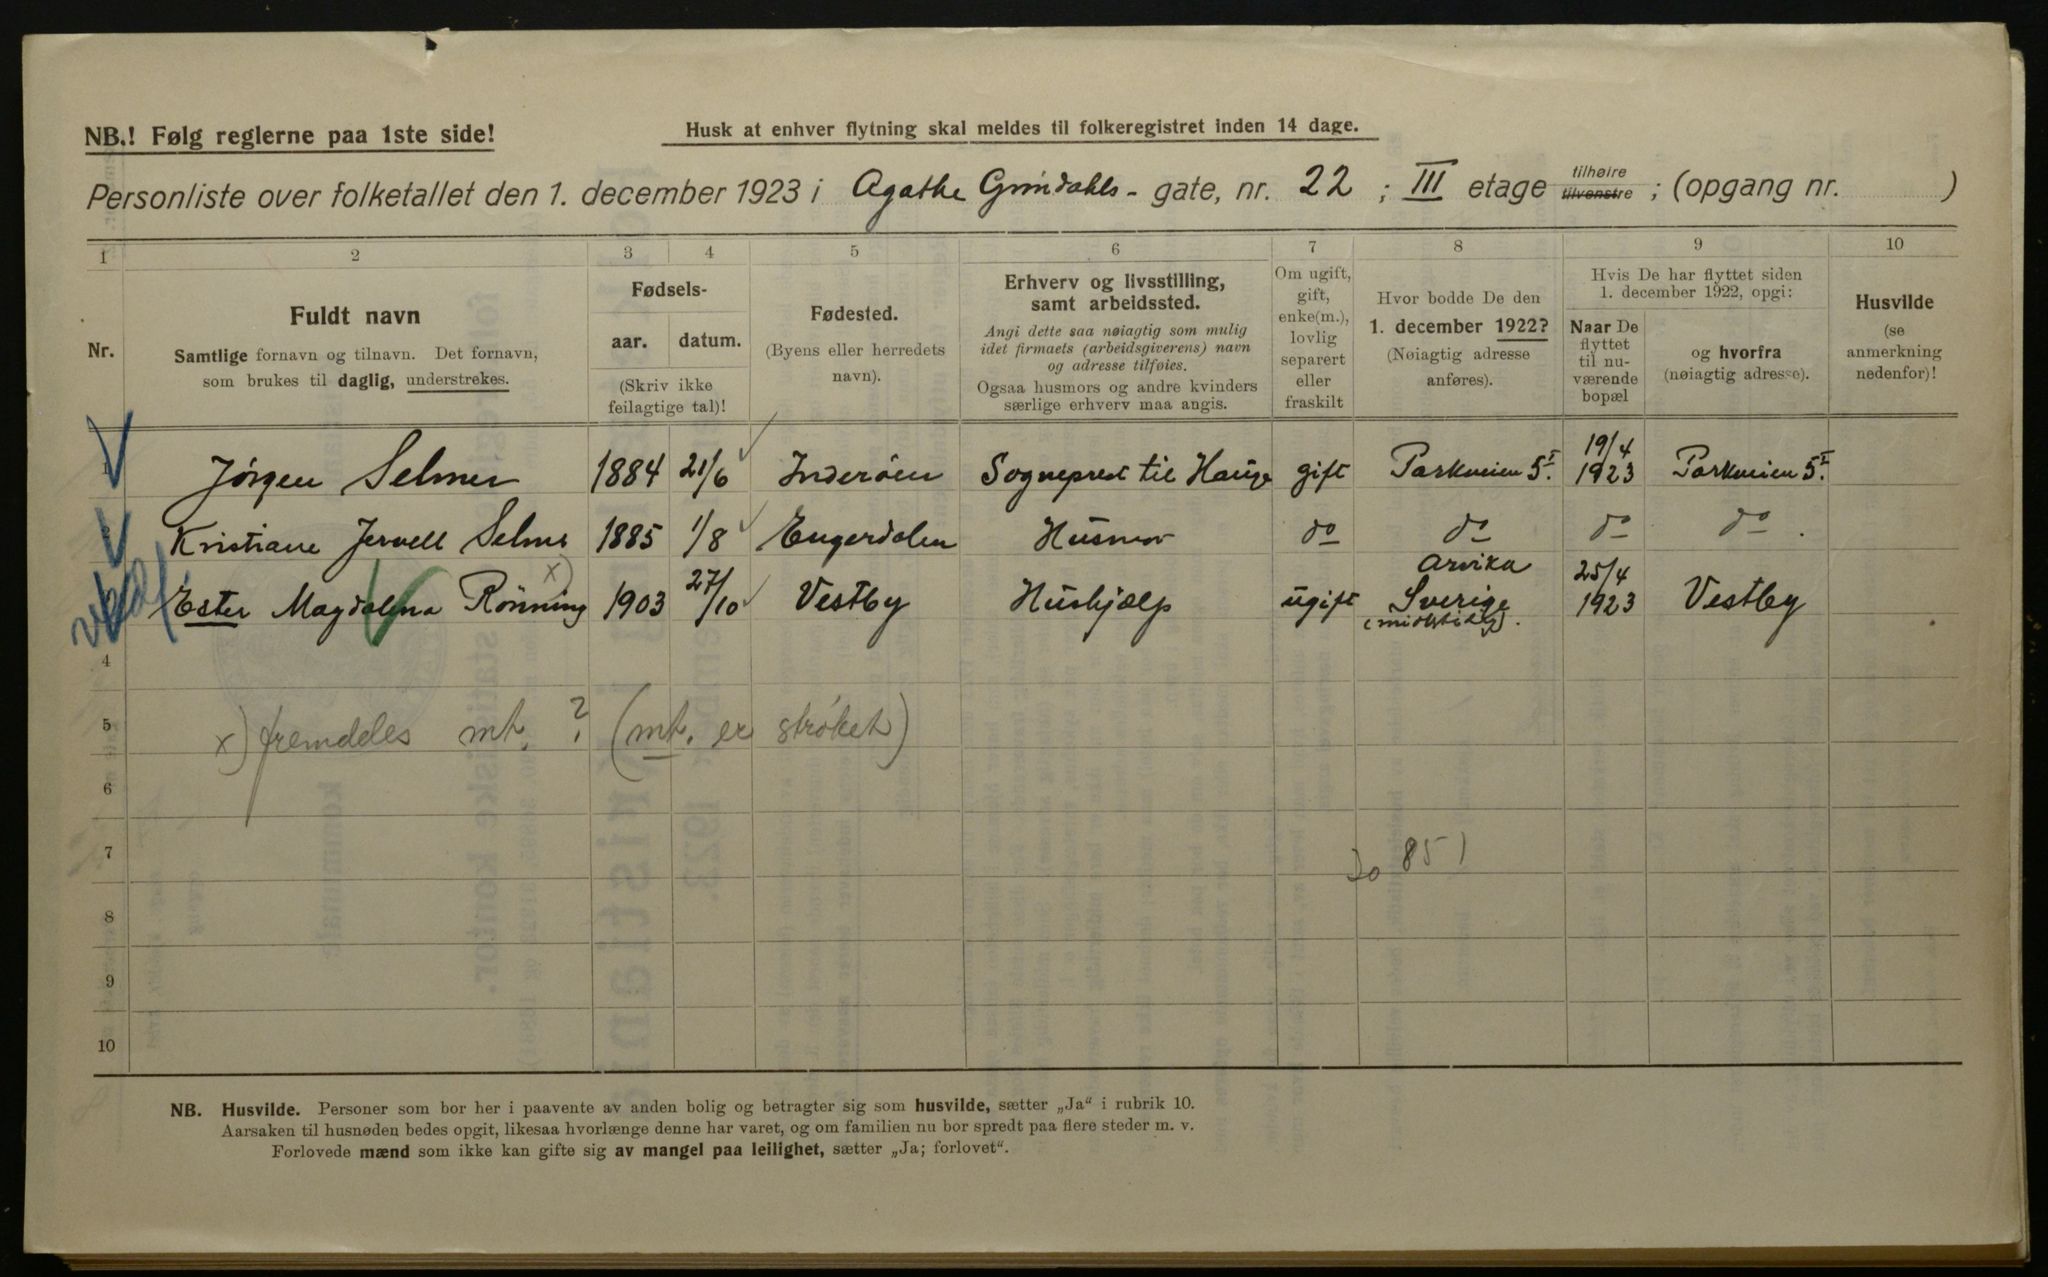 NB.! Følg reglerne paa 1ste side!
Husk at enhver flytning skal meldes til folkeregistret inden 14 dage.
Personliste over folketallet den 1. december 1923 i Agathe Grøndahls - gate, nr. 22 ; III etage tilhøire tilvenstre ; (opgang nr. )
1 2 3 4 5 6 7 8 9 10
Nr.
Fuldt navn
Samtlige fornavn og tilnavn. Det fornavn,
som brukes til daglig, understrekes.
Fødsels-
aar. datum.
(Skriv ikke
feilagtige tal)!
Fødested.
(Byens eller herredets
navn).
Erhverv og livsstilling,
samt arbeidssted.
Angi dette saa nøiagtig som mulig
idet firmaets (arbeidsgiverens) navn
og adresse tilføies.
Ogsaa husmors og andre kvinders
særlige erhverv maa angis.
Om ugift,
gift,
enke(m.),
lovlig
separert
eller
fraskilt
Hvor bodde De den
1. december 1922?
(Nøiagtig adresse
anføres).
Hvis De har flyttet siden
1. december 1922, opgi:
Naar De
flyttet
til nu-
værende
bopæl
og hvorfra
(nøiagtig adresse).
Husvilde
(se
anmerkning
nedenfor)!
Jørgen Selmer 1884 21/6 Inderøen Sogneprest til Hauge gift Parkveien 5 I. 19/4 1923 Parkveien 5 I.
Kristiane Jervell Selmer 1885 1/8 Engerdalen Husmor do do do do.
Ester Magdalena Rønning x) 1903 27/10 Vestby Hushjælp ugift Arvika Sverige (midlertidig). 25/4 1923 Vestby
4
5 x) fremdeles mt. ? (mt. er strøket)
6
7 Do 851
8
9
10
NB. Husvilde. Personer som bor her i paavente av anden bolig og betragter sig som husvilde, sætter „Ja“ i rubrik 10.
Aarsaken til husnøden bedes opgit, likesaa hvorlænge denne har varet, og om familien nu bor spredt paa flere steder m. v.
Forlovede mænd som ikke kan gifte sig av mangel paa leilighet, sætter „Ja; forlovet“.